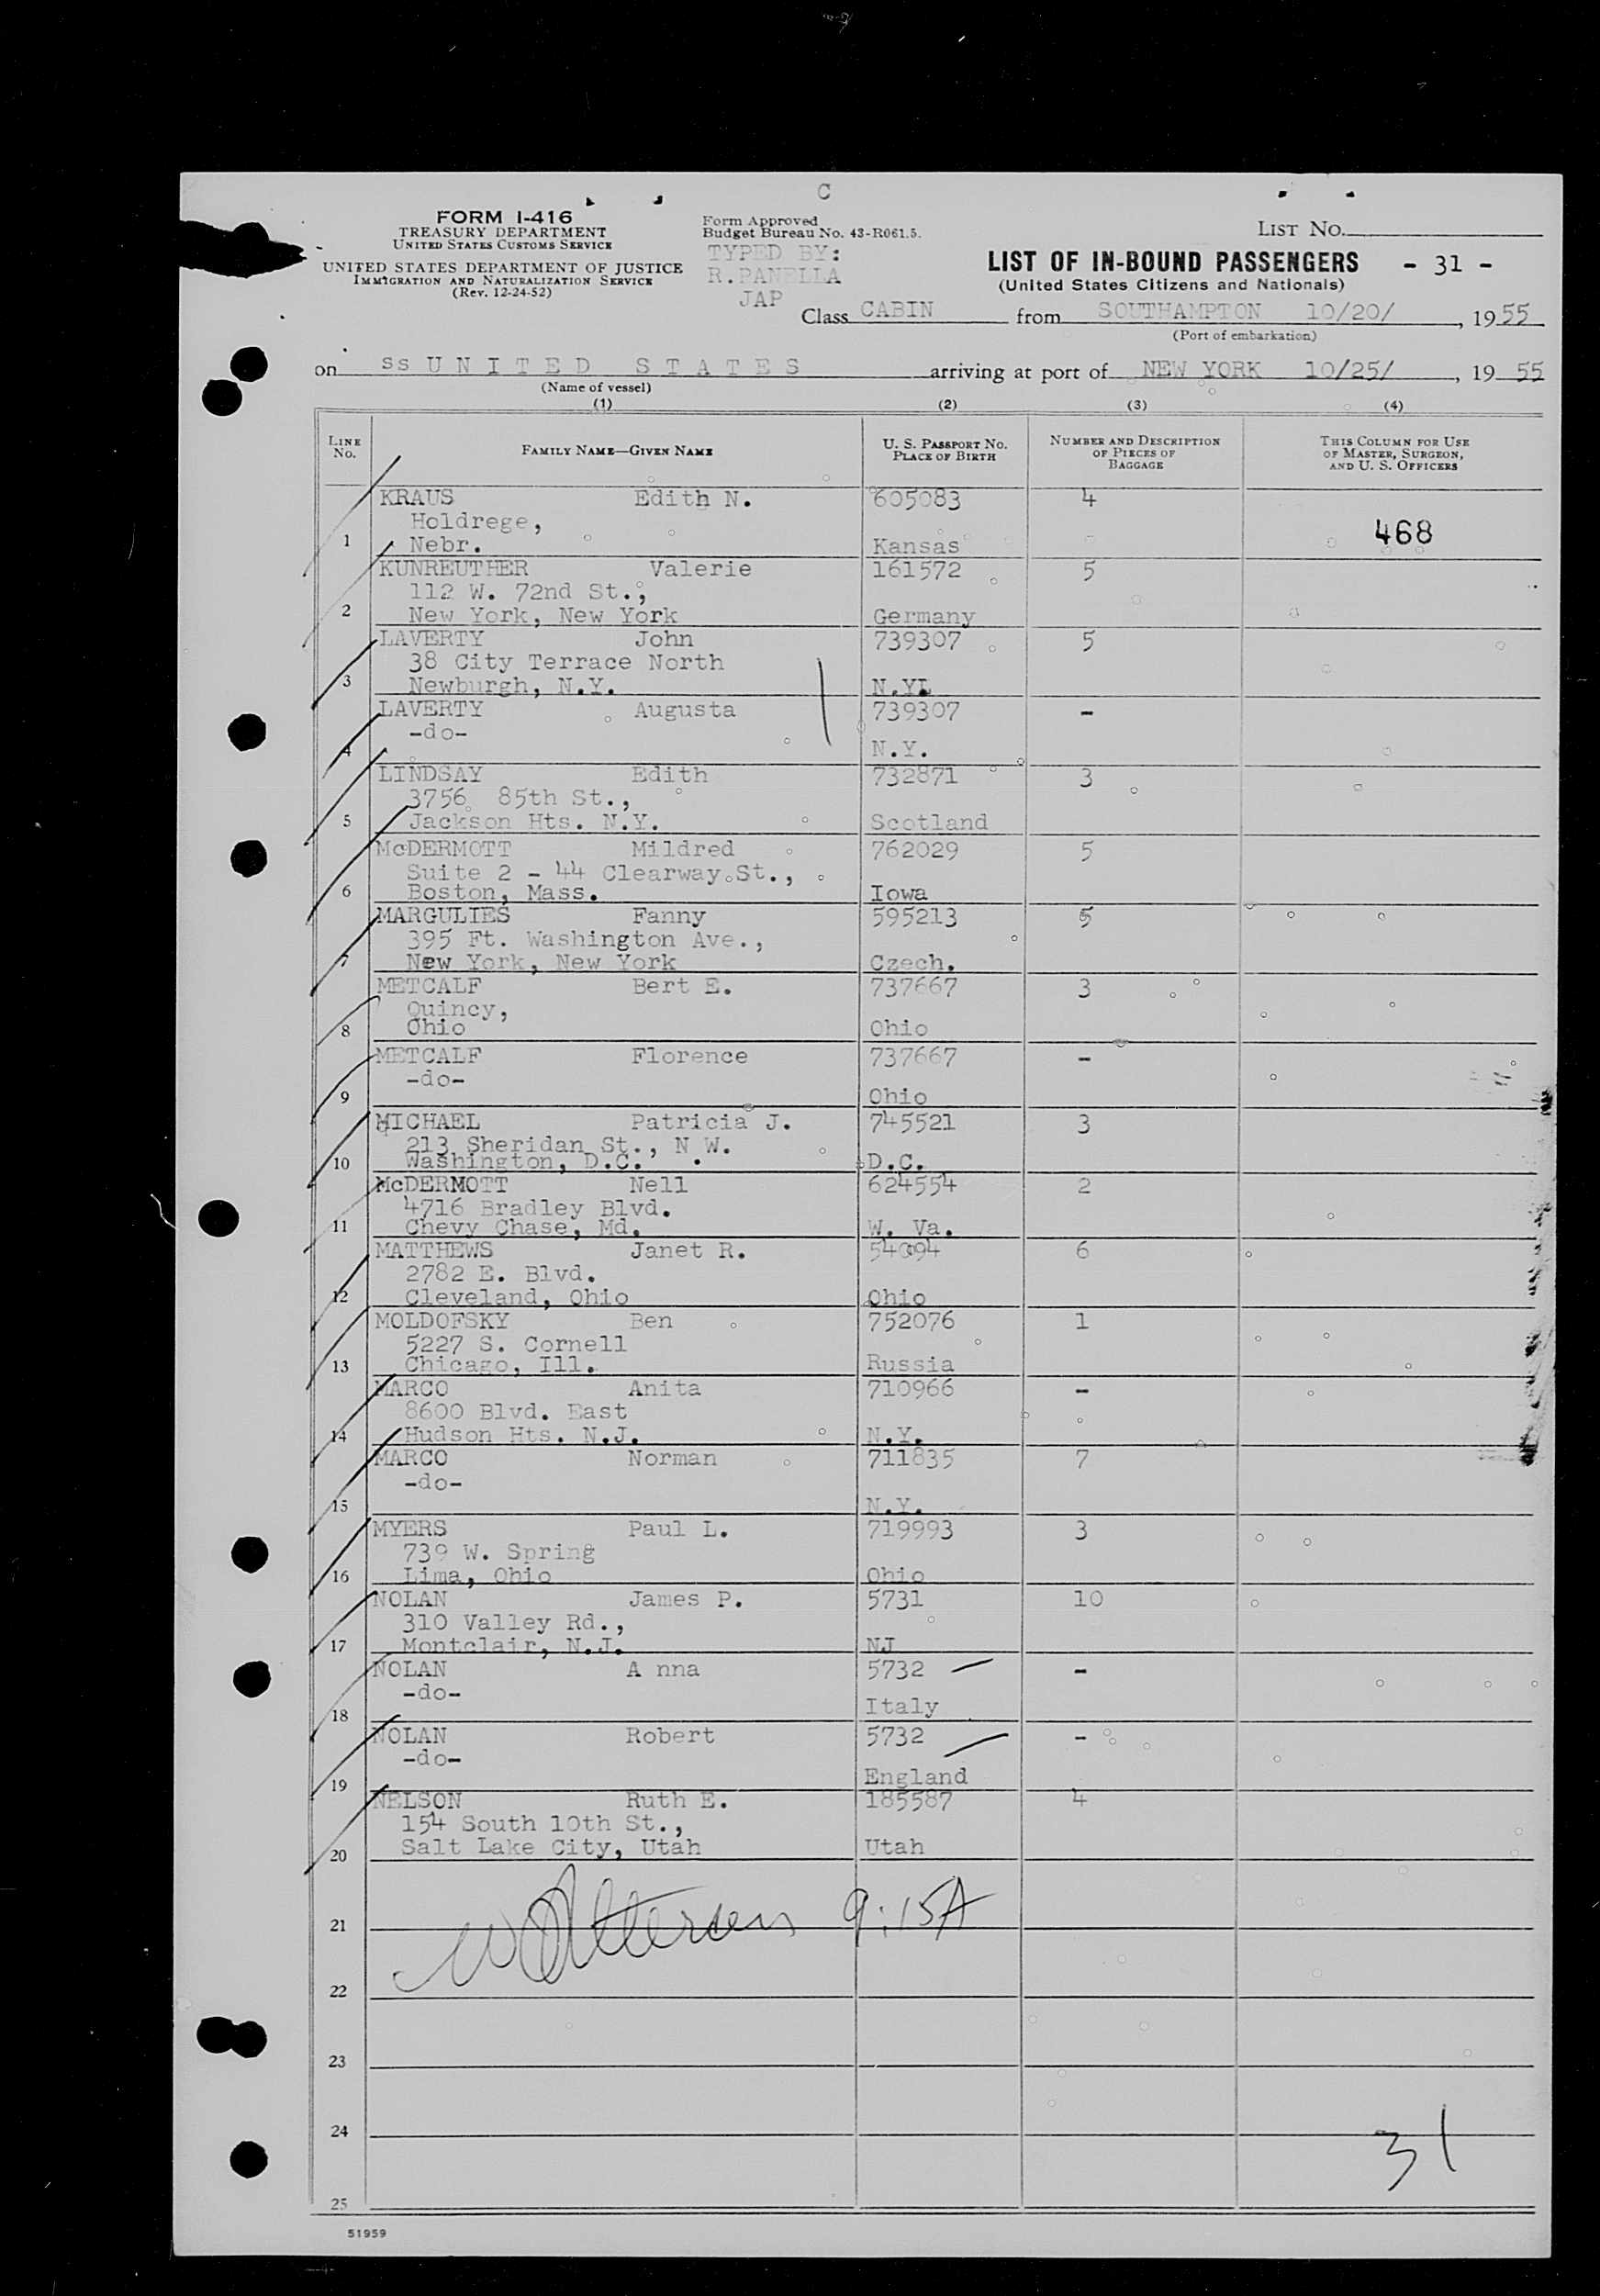 C
FORM I-416
TREASURY DEPARTMENT
UNITED STATES CUSTOMS SERVICE
UNITED STATES DEPARTMENT OF JUSTICE
IMMIGRATION AND NATURALIZATION SERVICE
(Rev. 12-24-52)
Form Approved
Budget Bureau No. 43-R061.5.
TYPED BY:
R.PANELLA
JAP
LIST NO.
LIST OF IN-BOUND PASSENGERS - 31 -
(United States Citizens and Nationals)
Class CABIN from SOUTHAMPTON 10/20/, 1955
(Port of embarkation)
on SS UNITED STATES arriving at port of NEW YORK 10/25/, 19 55
(Name of vessel)
(1) (2) (3) (4)
LINE NO. FAMILY NAME—GIVEN NAME U. S. PASSPORT NO. PLACE OF BIRTH NUMBER AND DESCRIPTION OF PIECES OF BAGGAGE THIS COLUMN FOR USE OF MASTER, SURGEON, AND U. S. OFFICERS
KRAUS Edith N. 605083 4
Holdrege, 468
1 Nebr. Kansas
KUNREUTHER Valerie 161572 5
112 W. 72nd St.,
2 New York, New York Germany
LAVERTY John 739307 5
38 City Terrace North
3 Newburgh, N.Y. N.Y.
LAVERTY Augusta 739307 -
-do-
4 N.Y.
LINDSAY Edith 732871 3
3756 85th St.,
5 Jackson Hts. N.Y. Scotland
McDERMOTT Mildred 762029 5
Suite 2 - 44 Clearway St.,
6 Boston, Mass. Iowa
MARGULIES Fanny 595213 5
395 Ft. Washington Ave.,
7 New York, New York Czech.
METCALF Bert E. 737667 3
Quincy,
8 Ohio Ohio
METCALF Florence 737667 -
-do-
9 Ohio
MICHAEL Patricia J. 745521 3
213 Sheridan St., N W.
10 Washington, D.C. D.C.
McDERMOTT Nell 624554 2
4716 Bradley Blvd.
11 Chevy Chase, Md. W. Va.
MATTHEWS Janet R. 54094 6
2782 E. Blvd.
12 Cleveland, Ohio Ohio
MOLDOFSKY Ben 752076 1
5227 S. Cornell
13 Chicago, Ill. Russia
MARCO Anita 710966 -
8600 Blvd. East
14 Hudson Hts. N.J. N.Y.
MARCO Norman 711835 7
-do-
15 N.Y.
MYERS Paul L. 719993 3
739 W. Spring
16 Lima, Ohio Ohio
NOLAN James P. 5731 10
310 Valley Rd.,
17 Montclair, N.J. NJ
NOLAN A nna 5732 -
-do-
18 Italy
NOLAN Robert 5732 -
-do-
19 England
NELSON Ruth E. 185587 4
154 South 10th St.,
20 Salt Lake City, Utah Utah
21 9:15A
22
23
24
31
25
51959